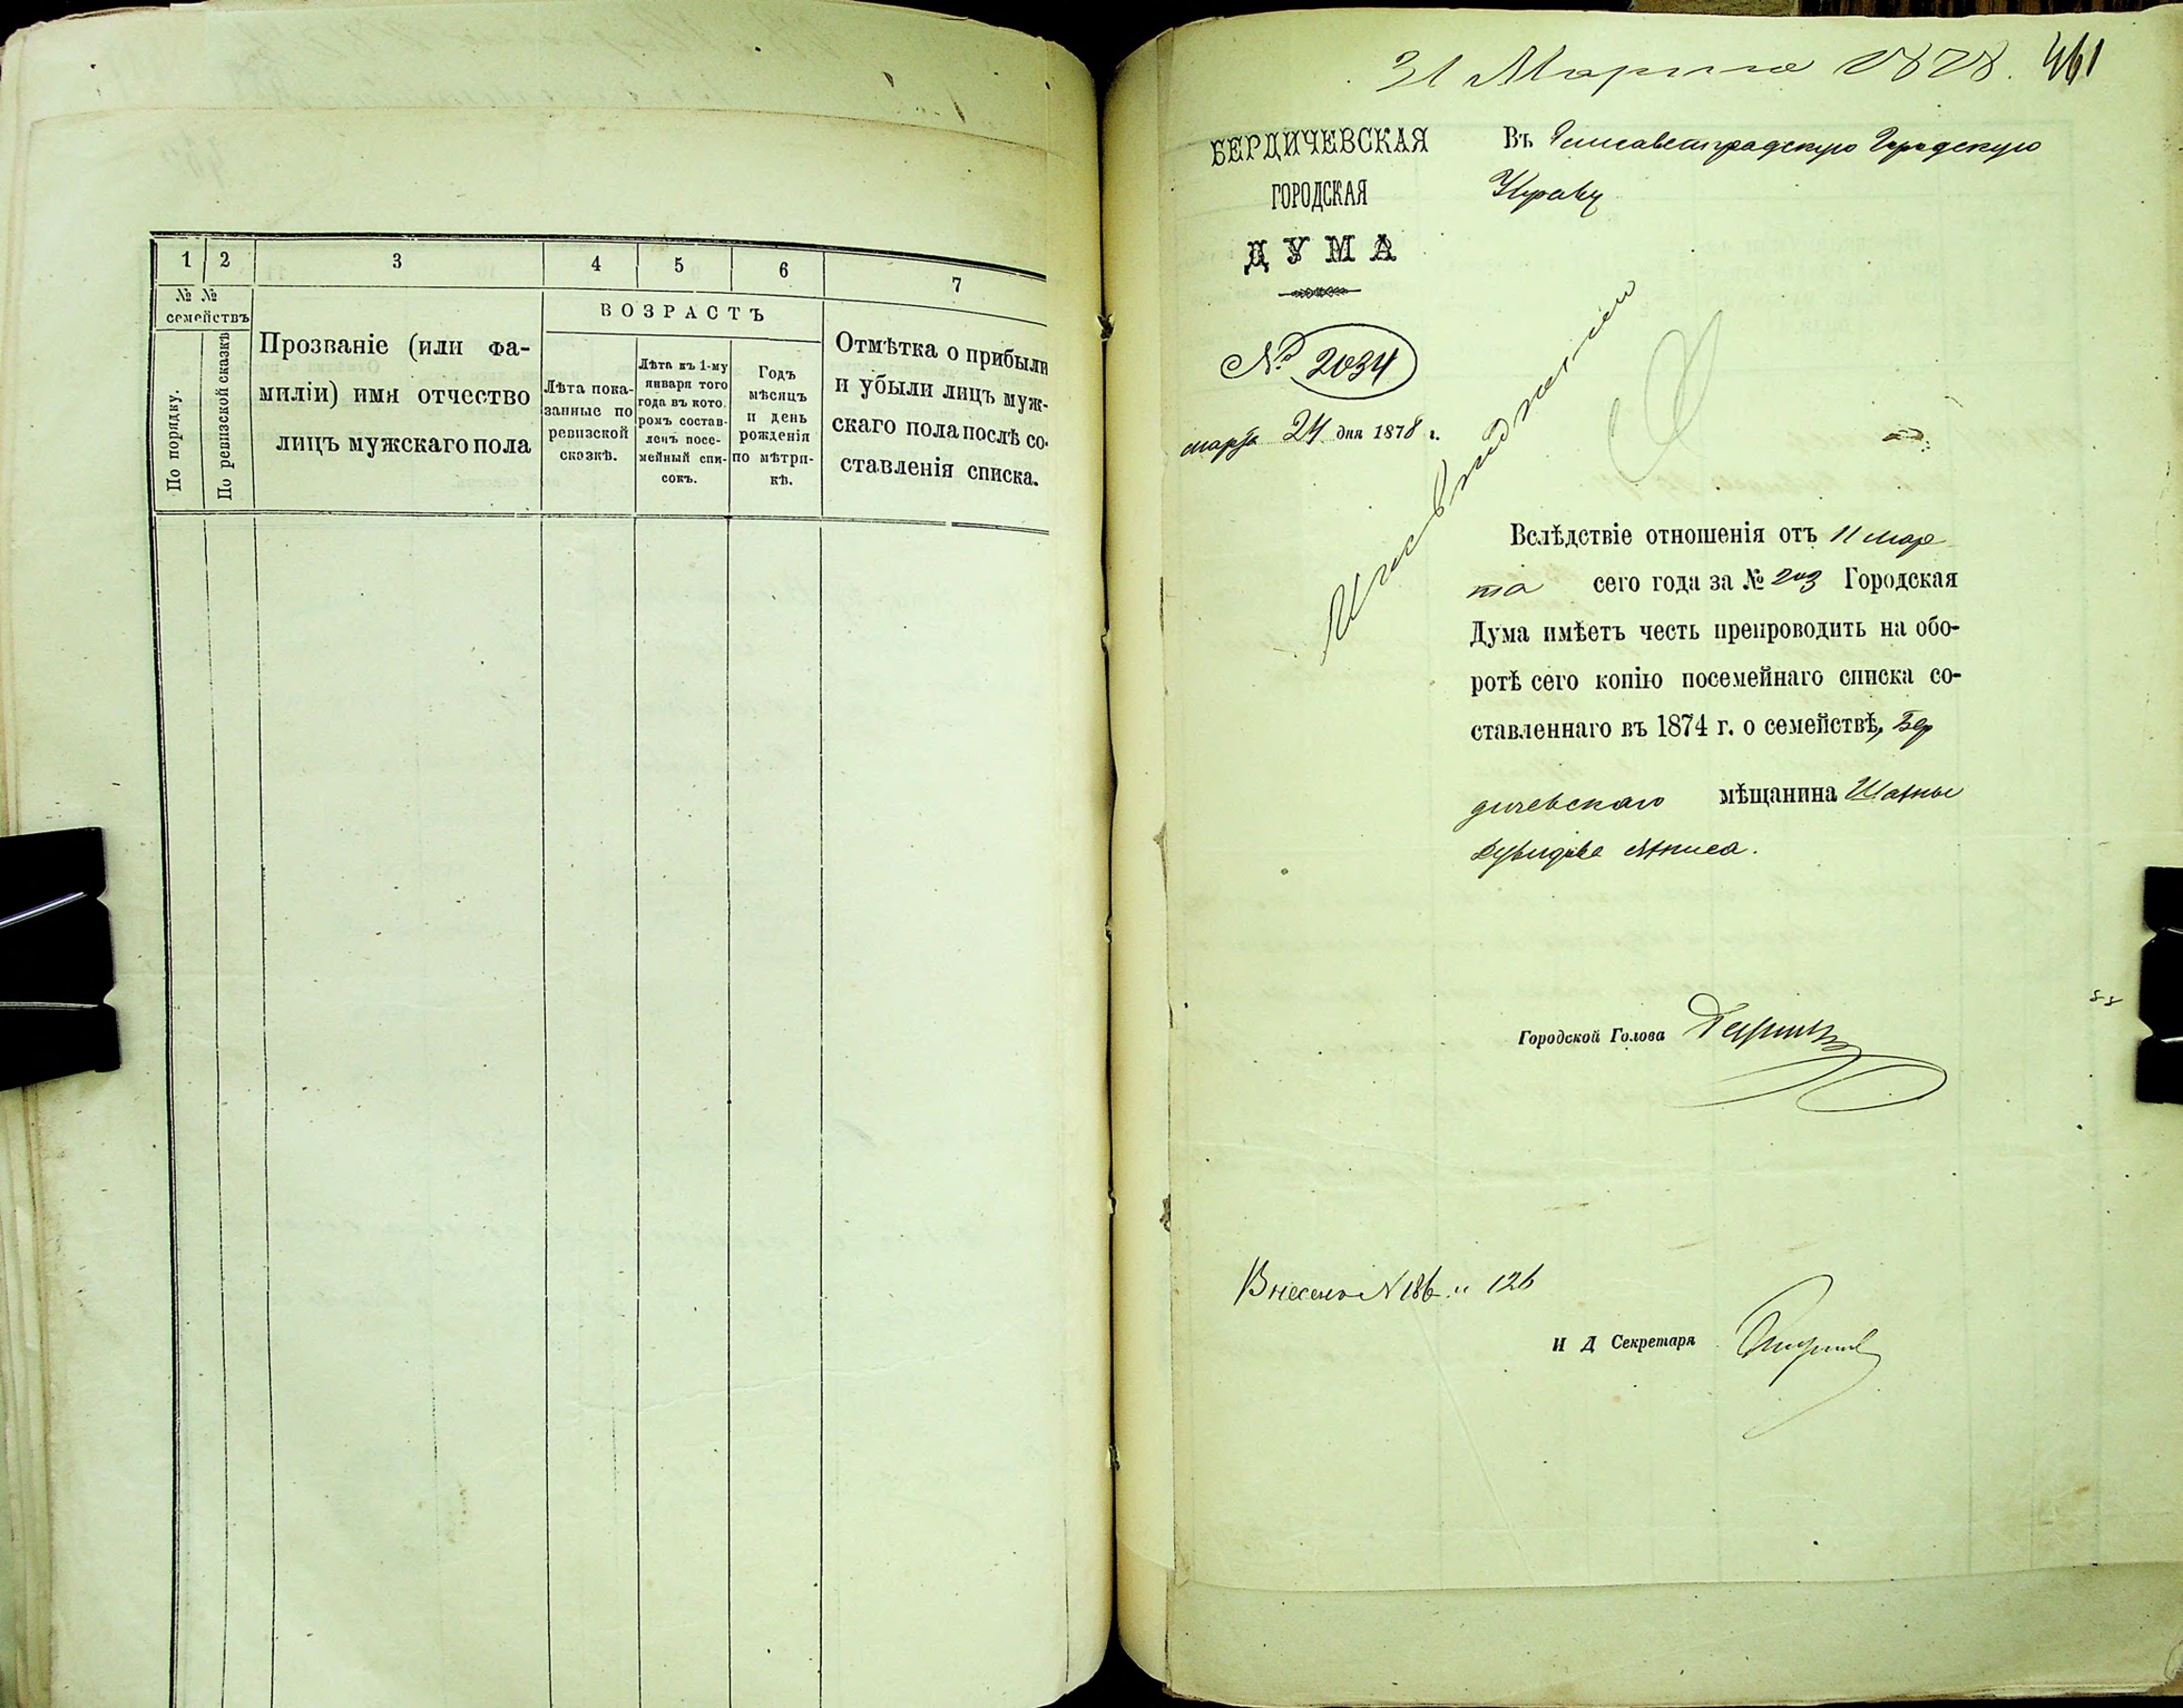 1 2 3 4 5 6 7
№ №
семействъ
По порядку.
По ревизской сказкѣ
Прозваніе (или фа-
миліи) имя отчество
лицъ мужскаго пола
ВОЗРАСТЪ
Лѣта пока-
занные по
ревизской
сказкѣ.
Лѣта къ 1-му
января того
года въ кото
ромъ состав-
ленъ посе-
мейный спи-
сокъ.
Годъ
мѣсяцъ
и день
рожденія
по мѣтри-
кѣ.
Отмѣтка о прибыли
и убыли лицъ муж-
скаго пола послѣ со-
ставленія списка.
31 Марта 1878. 461
БЕРДИЧЕВСКАЯ
ГОРОДСКАЯ
ДУМА
№ 2034
марта 24 дня 1878 г.
Въ Елисаветградскую Городскую
Управу
Вслѣдствіе отношенія отъ 11 мар
та сего года за № 203 Городская
Дума имѣетъ честь препроводить на обо-
ротѣ сего копію посемейнаго списка со-
ставленнаго въ 1874 г. о семействѣ, Бер
дичевскаго мѣщанина
Городской Голова
Внесено N 186 и 126
И Д Секретаря